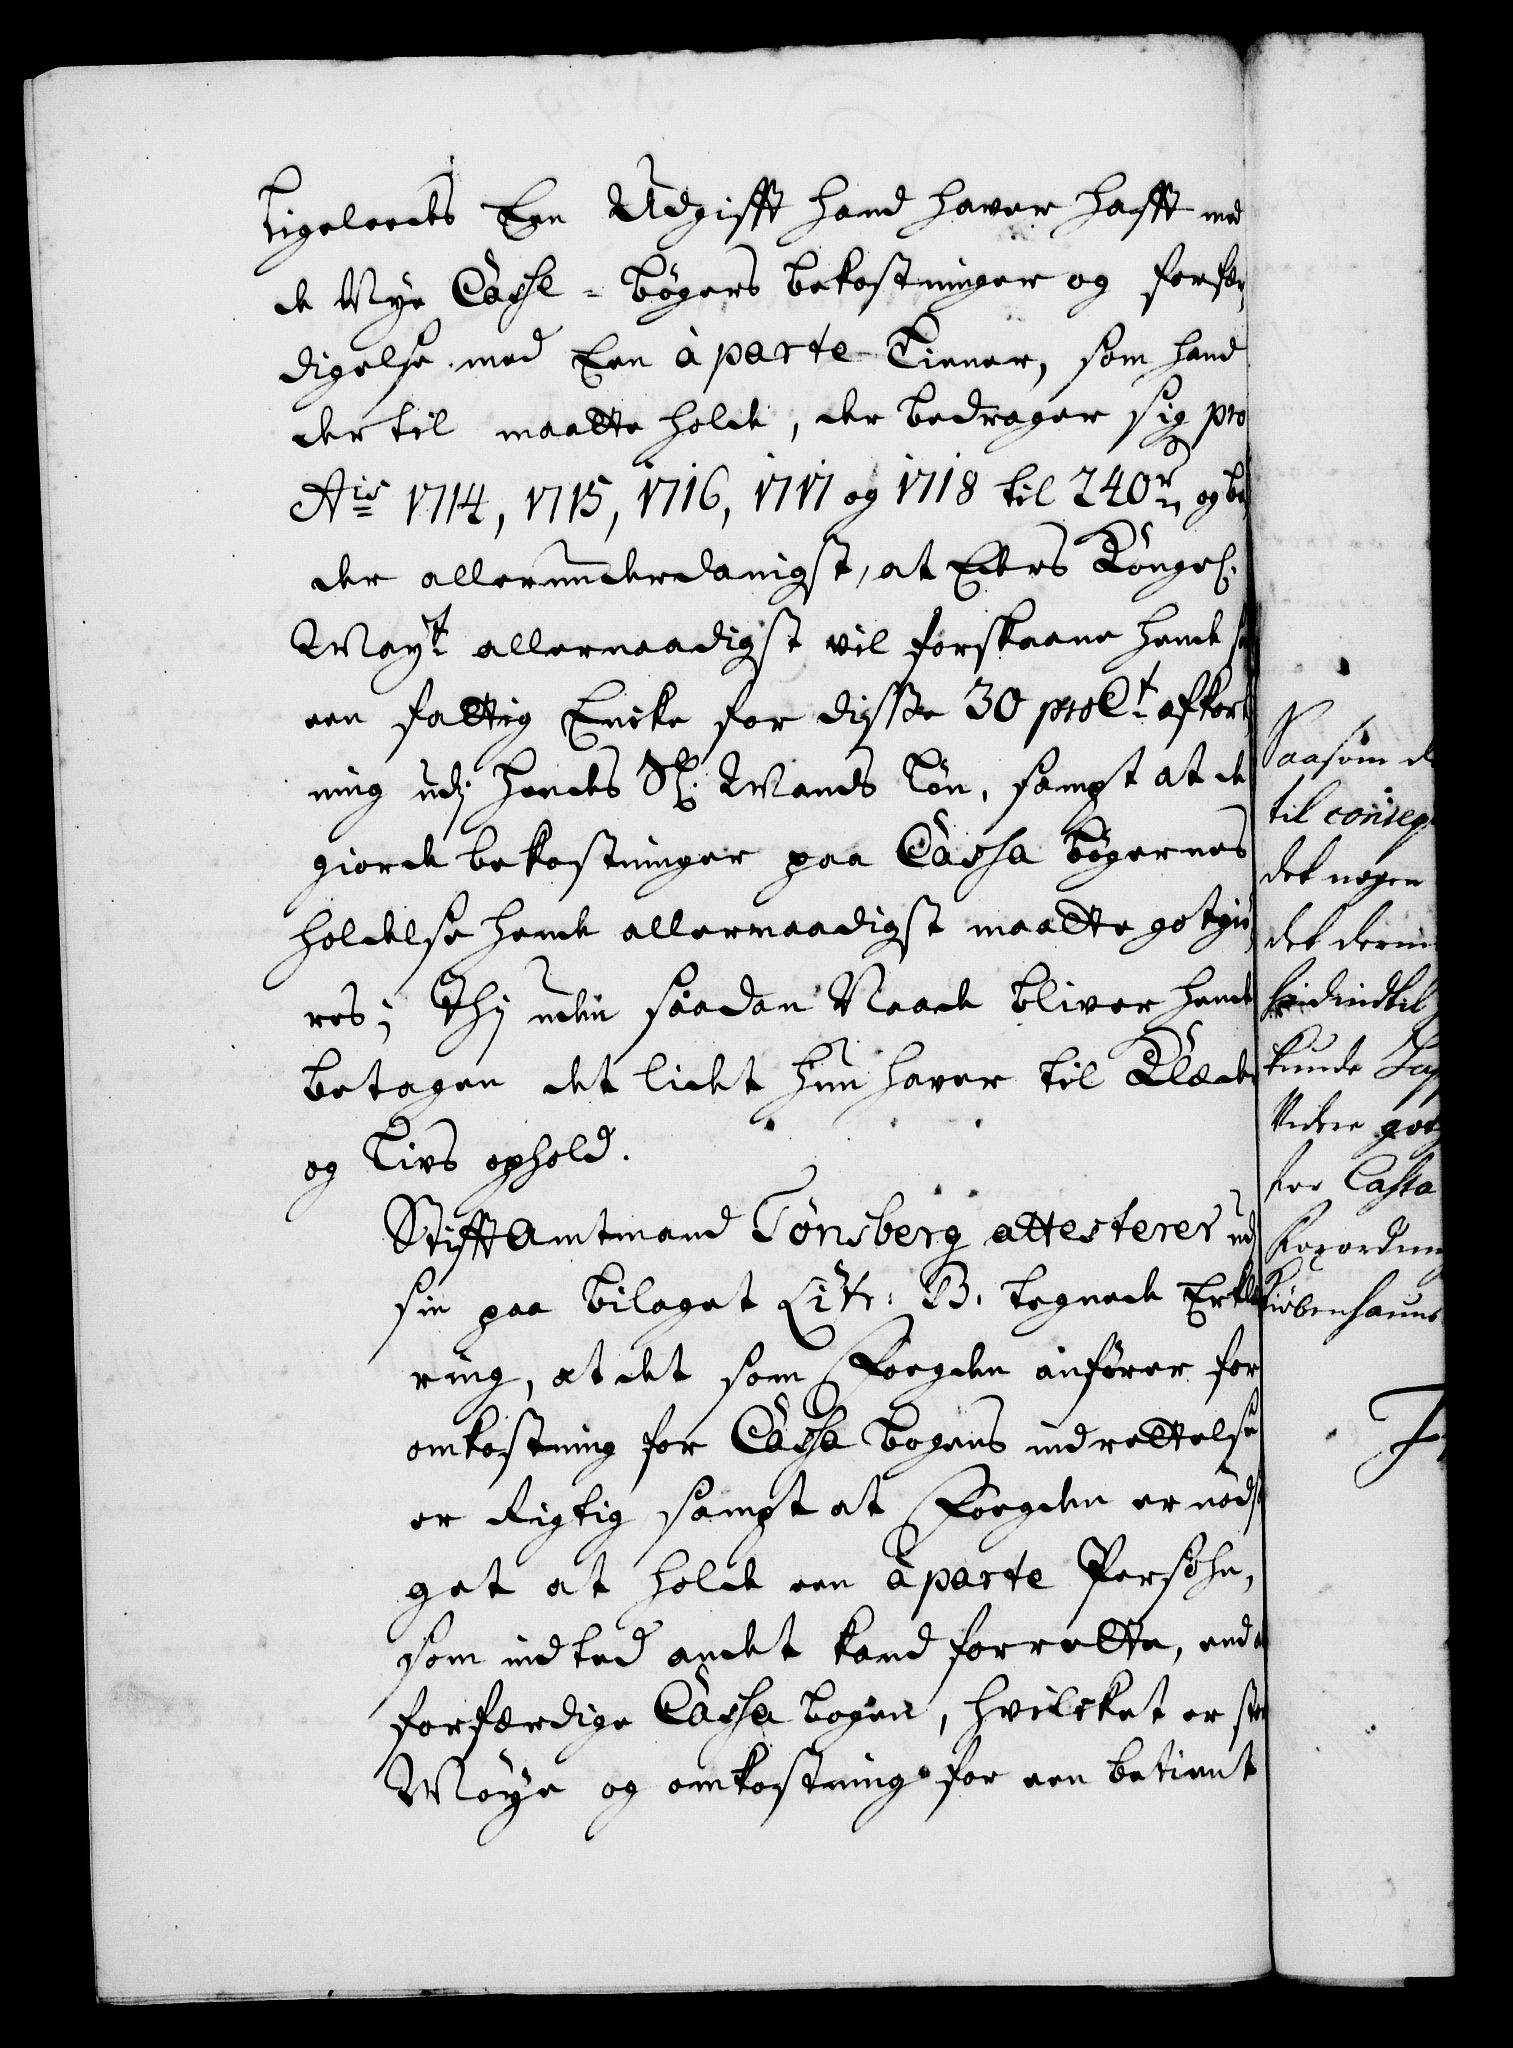 Ligeleedes Een Udgifft hand haver hafft med
de Nye Casse-bøgers bekostninger og forfær,
digelse med Een àparte Tiener, som hand
der til maatte holde, der bedrager sig pro
Aⁱˢ 1714, 1715, 1716, 1717 og 1718 til 240 rd og be,
der allerunderdanigst, at Eders Kongel.
May.t allernaadigst vil forskaane hende som
een fattig Encke for disse 30 proCt. afkort,
ning udj hendes Sl. Mands Løn, sampt at de
giorde bekostninger paa Cassa bøgernes
holdelse hende allernaadigst maatte gotgiø,
res; Thj uden saadan Naade bliver hende
betagen det lidet hun haver til Klæder
og Livs ophold.
StifftAmtmand Tønsberg attesterer udj
sin paa bilaget Litr: B. tegnede Erklæ
ring, at det som Foegden anfører for
omkostning for Cassa bogens indrettelse
er Rigtig sampt at Foegden er nødsa
get at holde een àparte Persohn,
som indted andet kand forrette, end at
forfærdige Cassa bogen, hvilcket er stor
Møye og omkostning for een betient
Saasom d
til conseq
det nogen
det derin
kunde
Videre got
for Cassa
Forordning
Kiøbenhauns
F